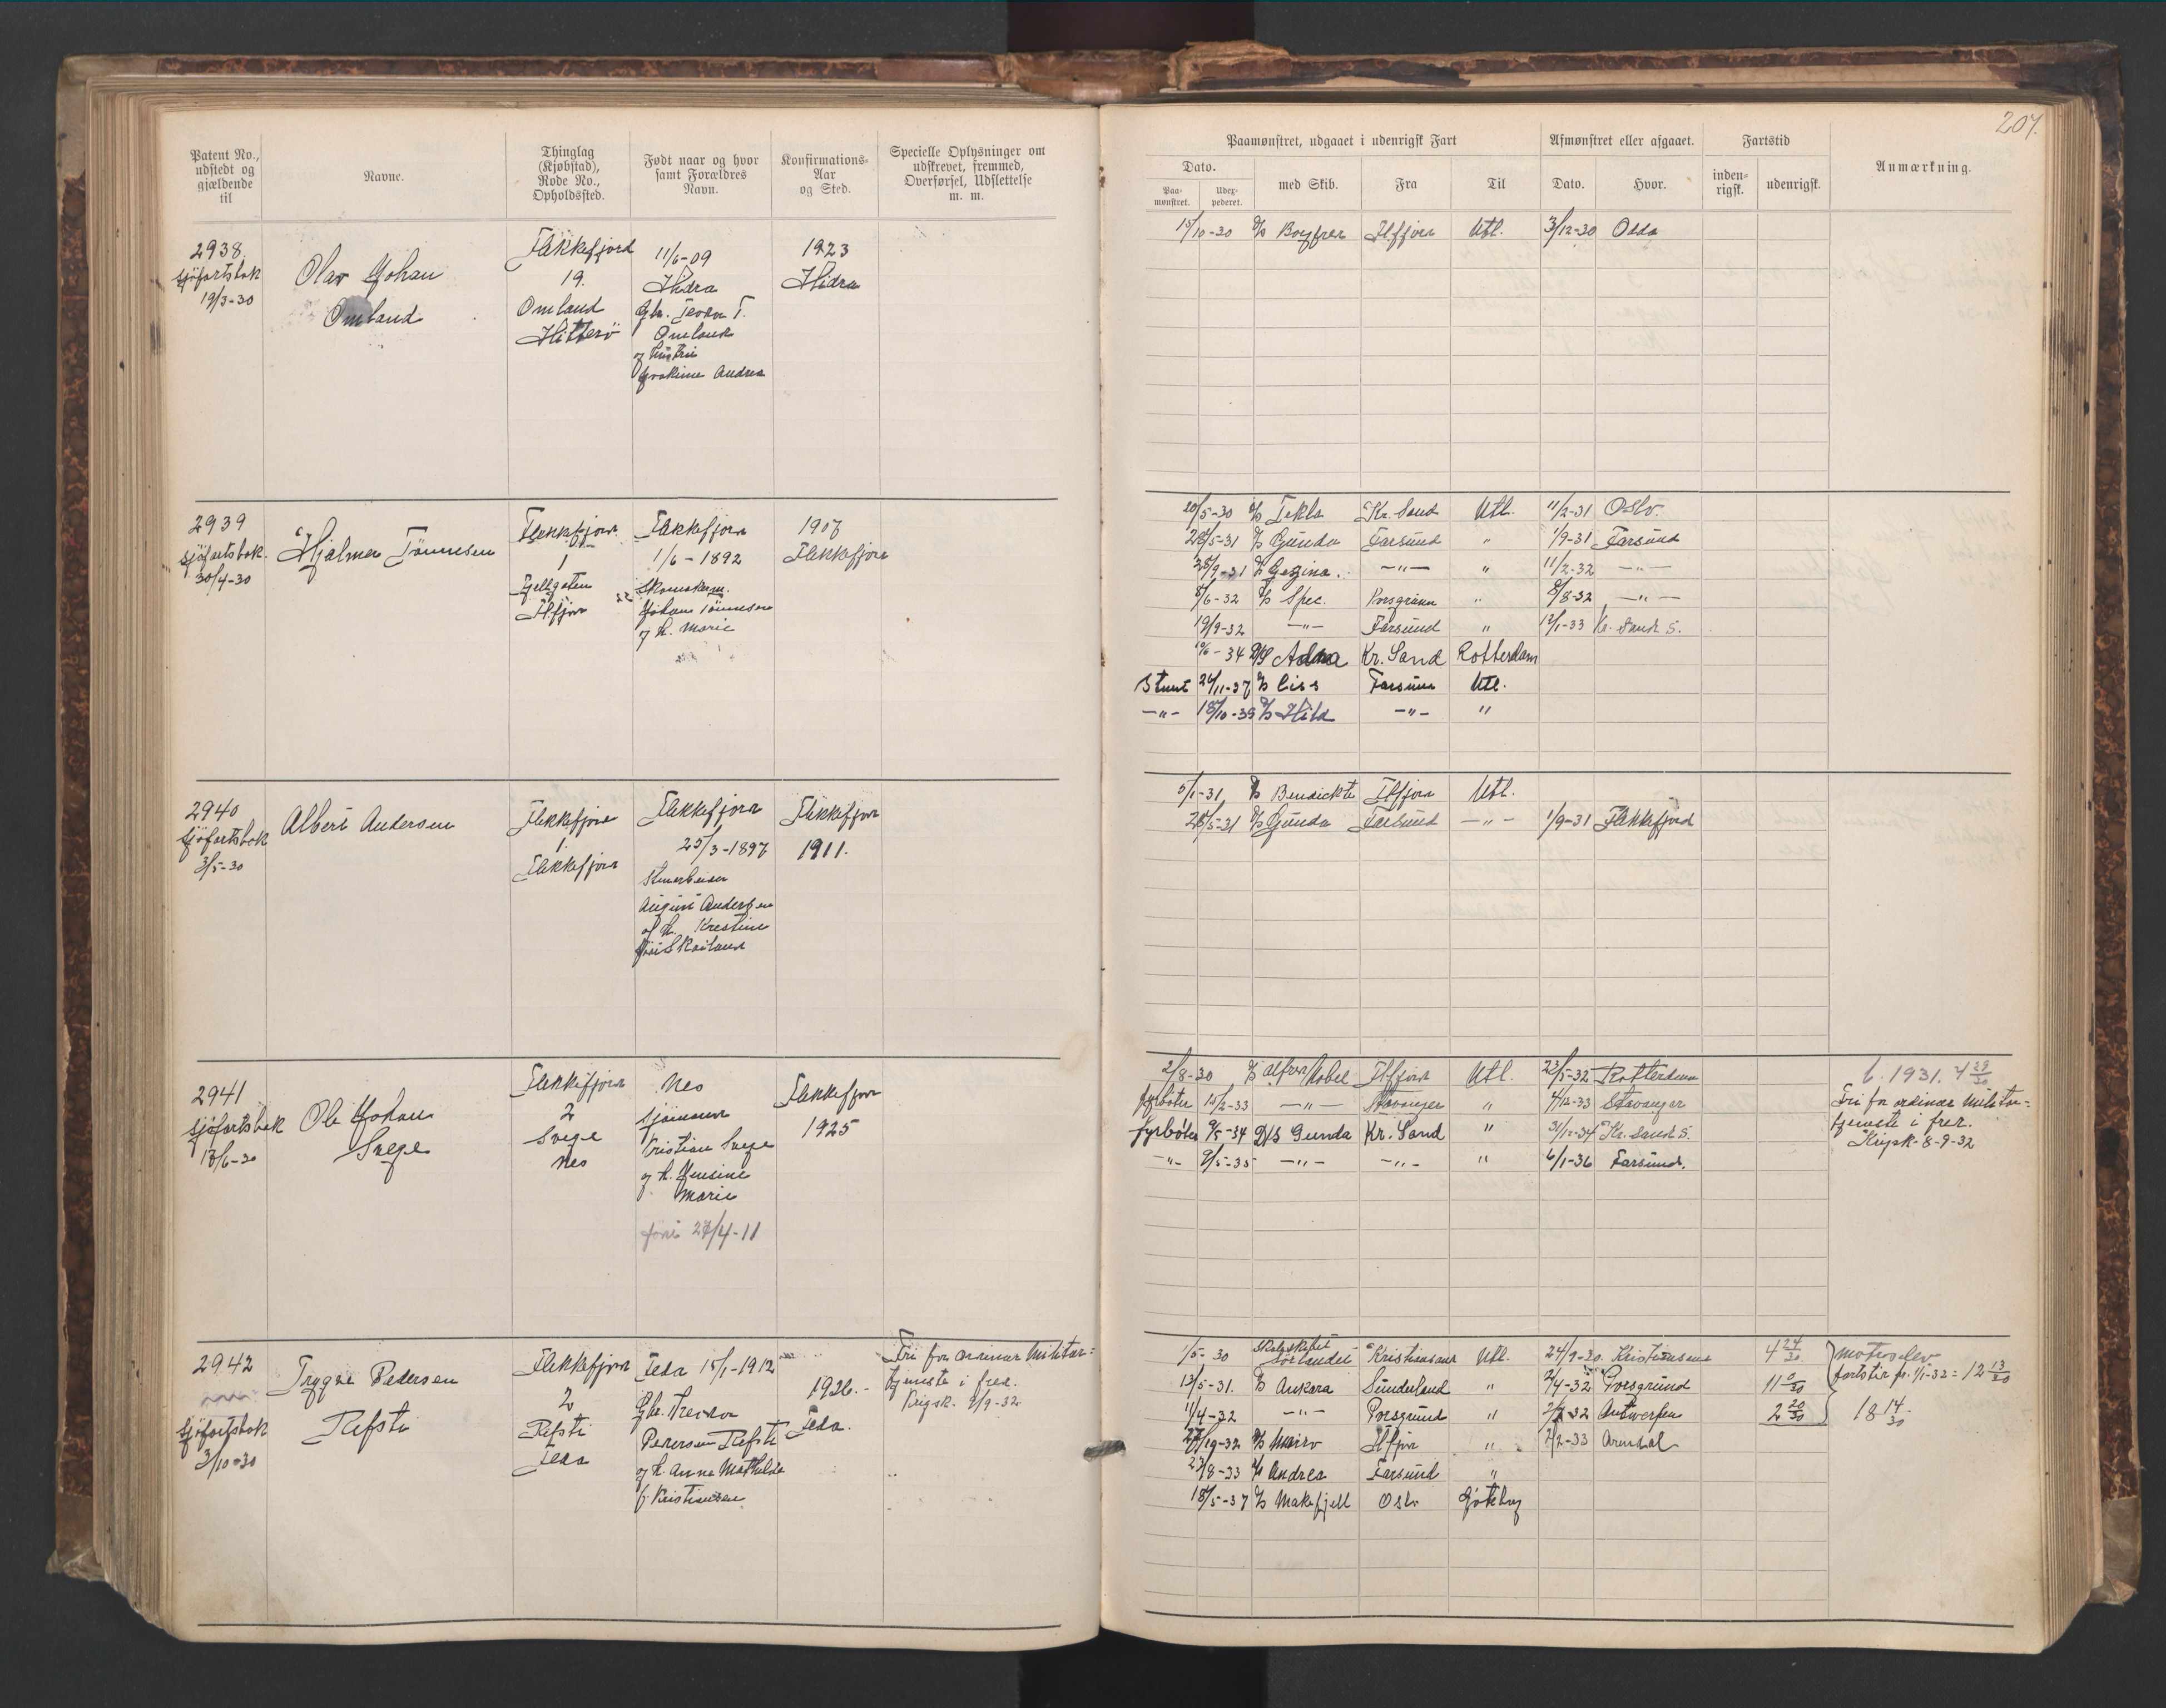 207.
Patent No., udstedt og gjældende til
Navne.
Thinglag (Kjøbstad), Rode No., Opholdssted.
Født naar og hvor samt Forældres Navn.
Konfirmations-Aar og Sted.
Specielle Oplysninger om udskrevet, fremmed, Overførsel, Udslettelse m. m.
Paamønstret, udgaaet i udenrigsk Fart
Afmønstret eller afgaaet.
Fartstid
Anmærkning.
Dato.
Paa-mønstret.
Udex-pederet.
med Skib.
Fra
Til
Dato.
Hvor.
inden-rigsk.
udenrigsk.
2938.
sjöfartsbok
19/3-30
Olav Johan
Omland
Flekkefjord
19.
Omland
Hitterö
11/6-09
Hidra
Gbr. Teodor T.
Omland
og hustru
Joakime Andrea
1923
Hidra
15/10-30 Flfjord Utl. 3/12-30
2939
sjöfartsbok.
30/4-30
Hjalmar Tönnesen
Flekkefjord
1
Fjellgaten
Flfjord
Flekkefjord
1/6-1892
Skomakerm.
Johan Tönnesen
og h. Marie
1907
Flekkefjord
20/5-30 D/S Tekla Kr. Sand Utl. 11/2-31 Oslo.
28/5-31 D/S Gunda Farsund " 1/9-31 Farsund
25/9-31 D/S Gezina. -"- " 11/2-32 -"-
8/6-32 D/S Spec. Porsgrunn " 8/8-32 -"-
19/9-32 -"- Farsund " 12/1-33 Kr. sand S.
34 D/S Kr. Sand Rotterdam
Stuert 24/11-37 D/S Liss Farsund Utl.
-"- 18/10-39 D/S Hild -"- "
2940
sjöfartsbok
3/5-30
Albert Andersen
Flekkefjord
1.
Flekkefjord
Flekkefjord
25/3-1897
Stenarbeider
August Andersen
og h. Krestine
Flekkefjord
1911.
5/1-31 D/S Benedickte Flfjord Utl.
28/5-31 D/S Gunda Farsund -"- 1/9-31 Flekkefjord
2941
sjöfartsbok
18/6-30
Ole Johan
Svege
Flekkefjord
2
Svege
Nes
Nes
sjömann
Kristian Svege
og h. Jensine
Marie
födt 27/4-11
Flekkefjord
1925
2/8-30 D/S Alfred Nobel Flfjord Utl. 23/5-32 Rotterdam
fyrböter 15/2-33 -"- Stavanger " 4/12-33 Stavanger
fyrböter 9/5-34 D/S Gunda Kr. Sand " 31/12-34 Kr. sand S.
-"- 9/5-35 -"- -"- " 6/1-36 Farsund.
6. 1931. 4 29/30
Fri for ordinær militær-
tjeneste i fred.
Krigsk. 8-9-32
2942
Sjöfartsbok
3/10-30
Trygve Pedersen
Refsti
Flekkefjord
2
Refsti
Feda
Feda 15/1-1912
Gbr. Treidar
Pedersen Refsti
og h. Anna Mathilde
f. Kristiansen
1926.-
Feda.
Fri for ordinær militær-
tjeneste i fred.
Krigsk. 8/9-32
1/5-30 Skoleskibet Sörlandet Kristiansand Utl. 24/9-30. Kristiansand 4 24/30
13/5-31. D/S Ankara Sunderland " 2/4-32 Porsgrund 11 0/30
11/4-32 -"- Porsgrund " 32 Antwerpen 2 20/30
32 Flfjord " 2/2-33 Arendal
23/8-33 D/S Andrea Farsund "
18/5-37 D/S Makefjell Oslo Göteborg
motorelev
fartstid pr. 1/1-32 = 12 13/30
18 14/30